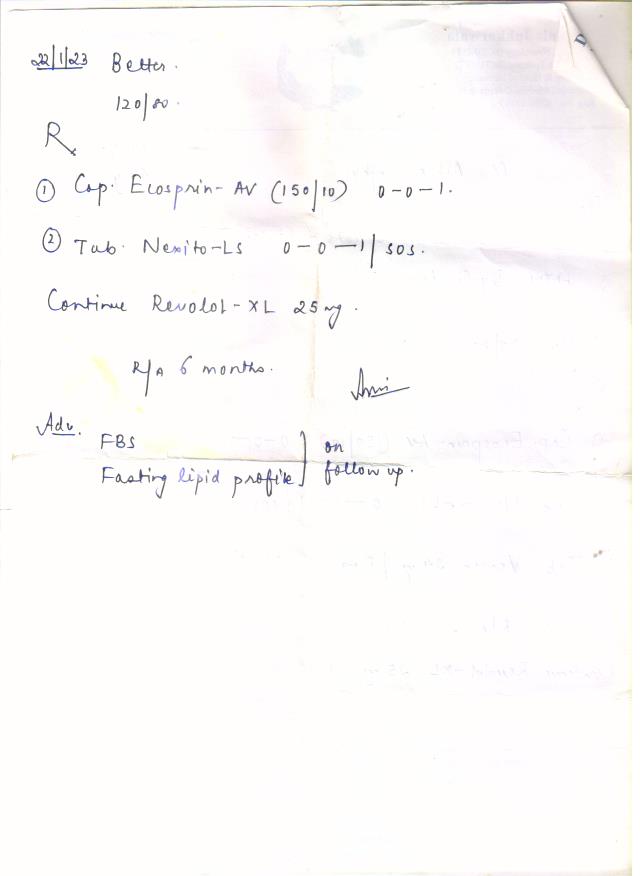 22/1/23 Better.
120/80.
Rx
① Cap. Ecosprin-AV (150/10) 0-0-1.
② Tab. Nexito-LS 0-0-1/sos.
Continue Revolol-XL 25mg.
R/A 6 months.
Adv. FBS
Fasting lipid profile } on follow up.